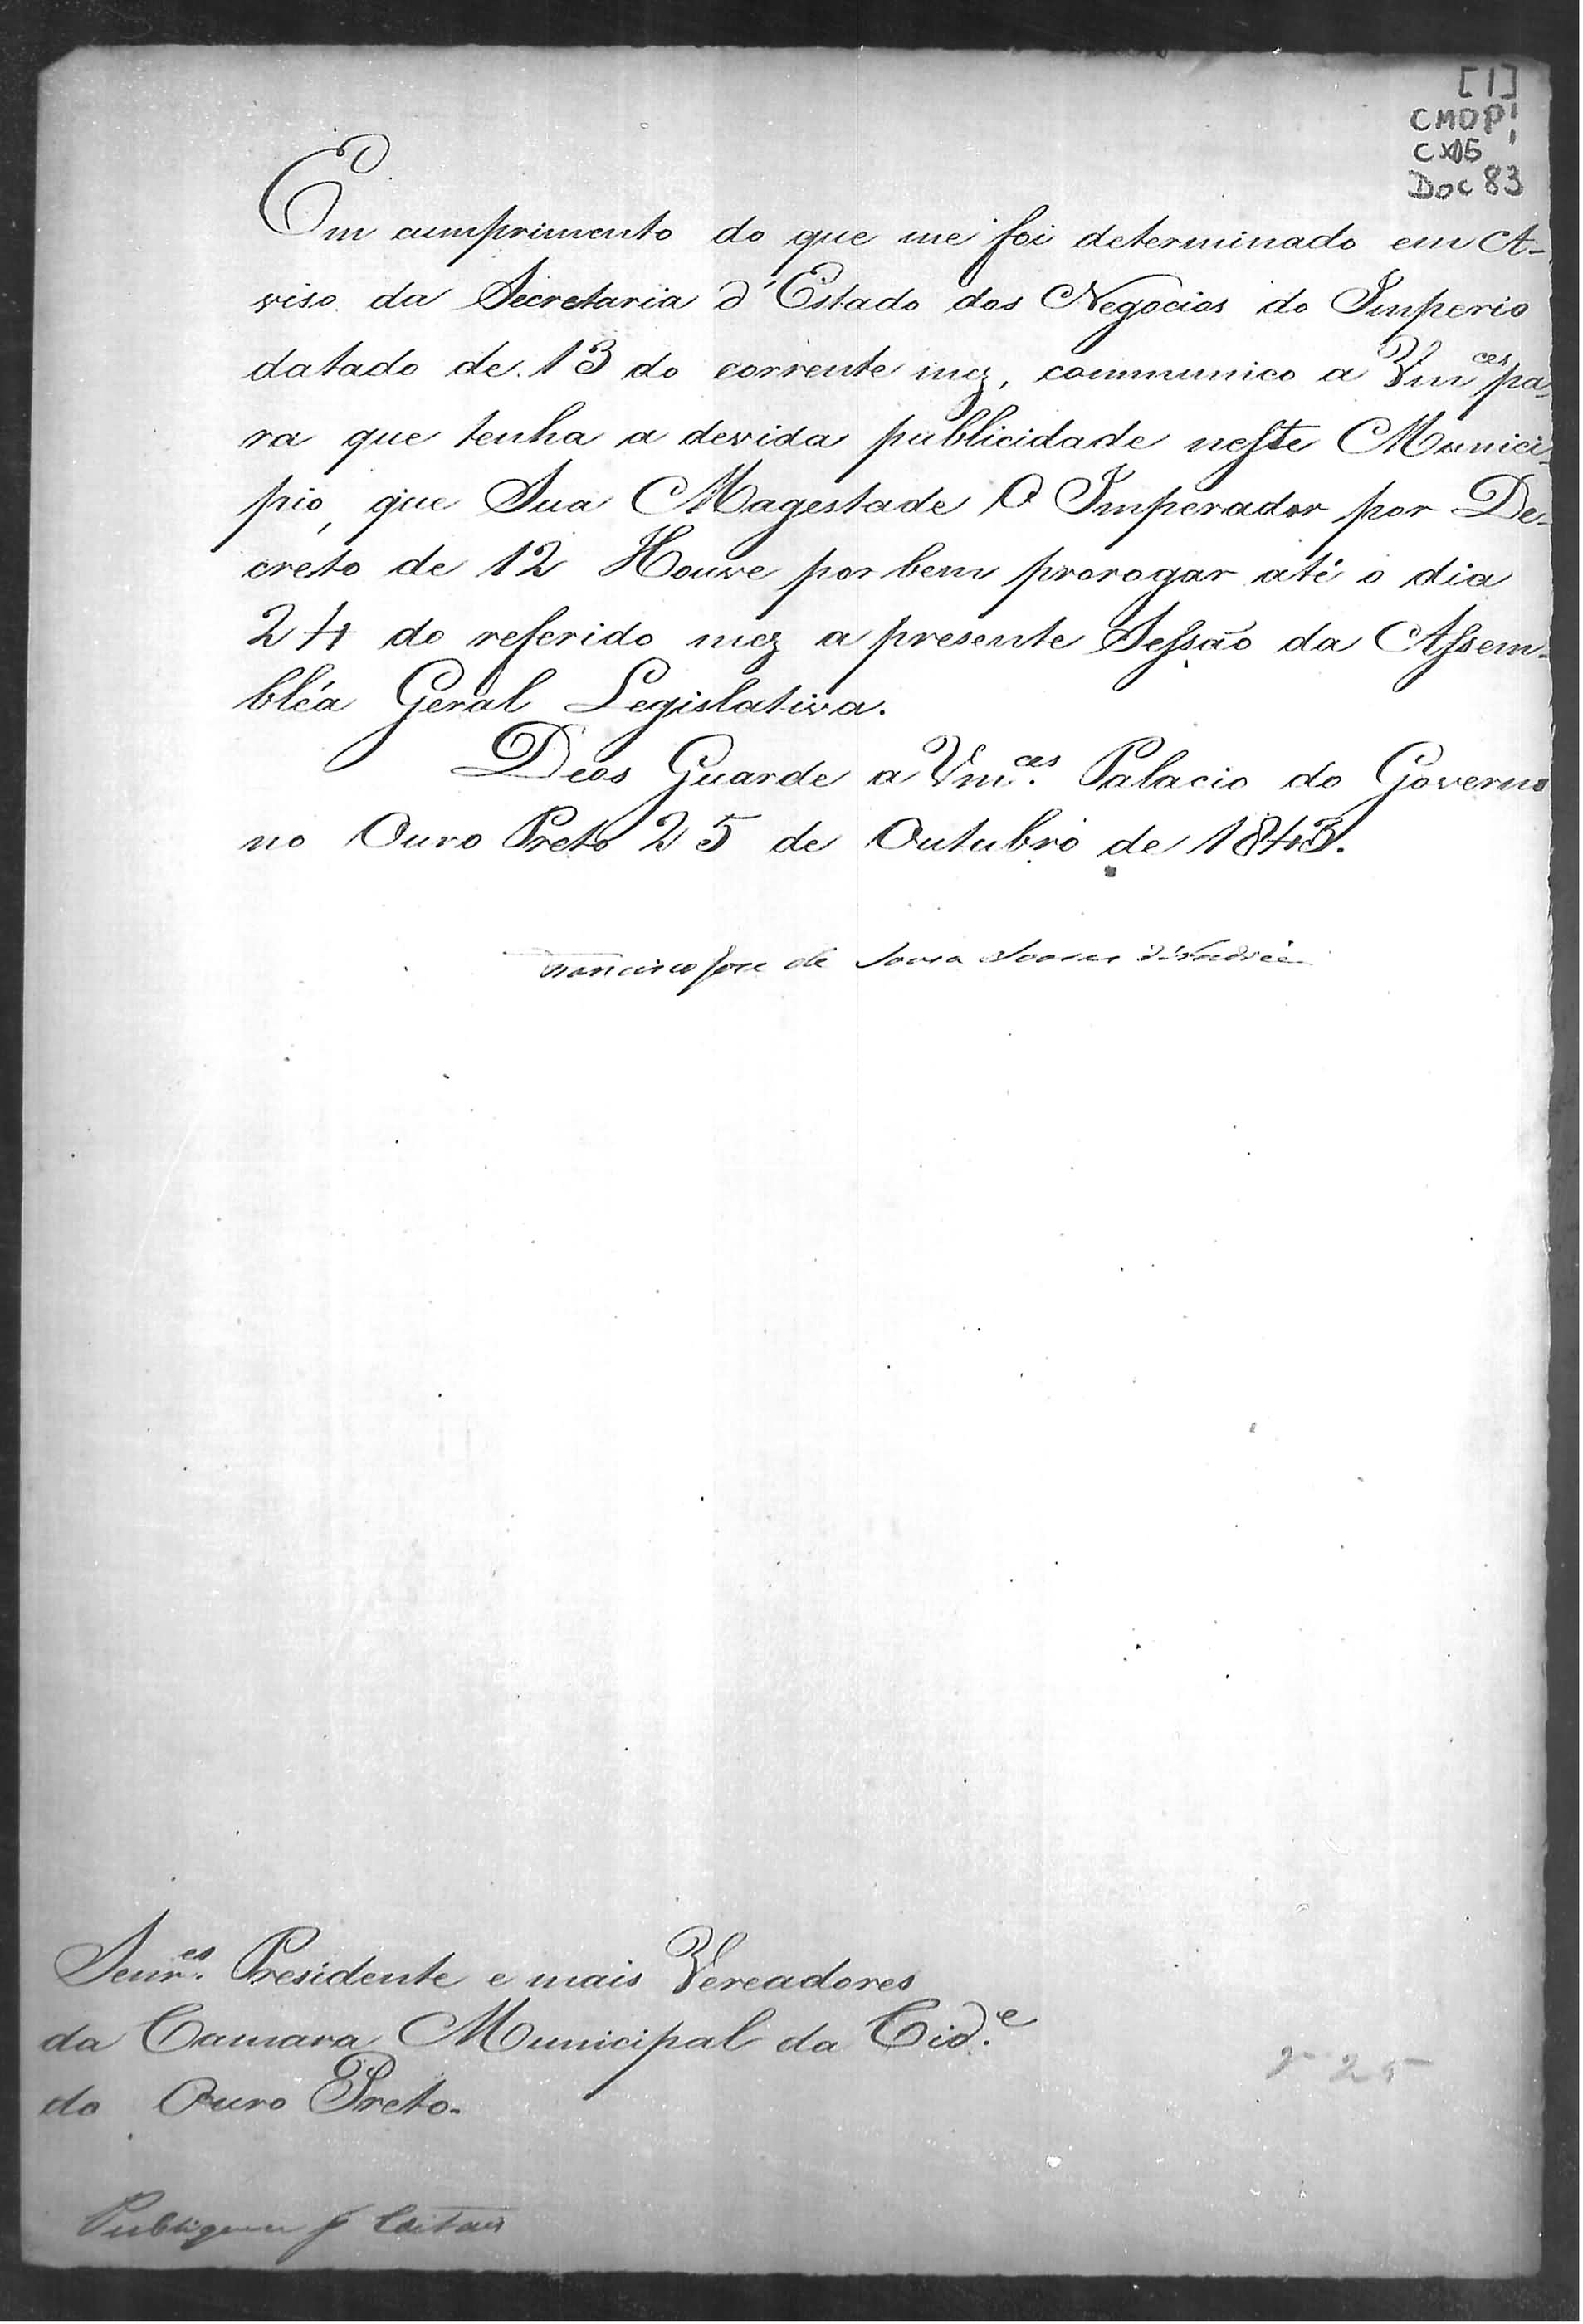 [1]
CMOP
CX05
Doc 83
Em cumprimento do que me foi determinado em A-
viso da Secretaria d'Estado dos Negocios do Imperio
datado de 13 do corrente mez, communico a Vmces pa-
ra que tenha a devida publicidade neste Munici-
pio, que Sua Magestade O Imperador por De-
creto de 12 Houve por bem prorogar até o dia
24 do referido mez a presente Sessão da Assem-
bléa Geral Legislativa.
Deos Guarde a Vmces. Palacio do Governo
no Ouro Preto 25 de Outubro de 1843.
Francisco Jose de Souza Soares d'Andréa
Senres. Presidente e mais Vereadores
da Camara Municipal da Cide.
do Ouro Preto.
25